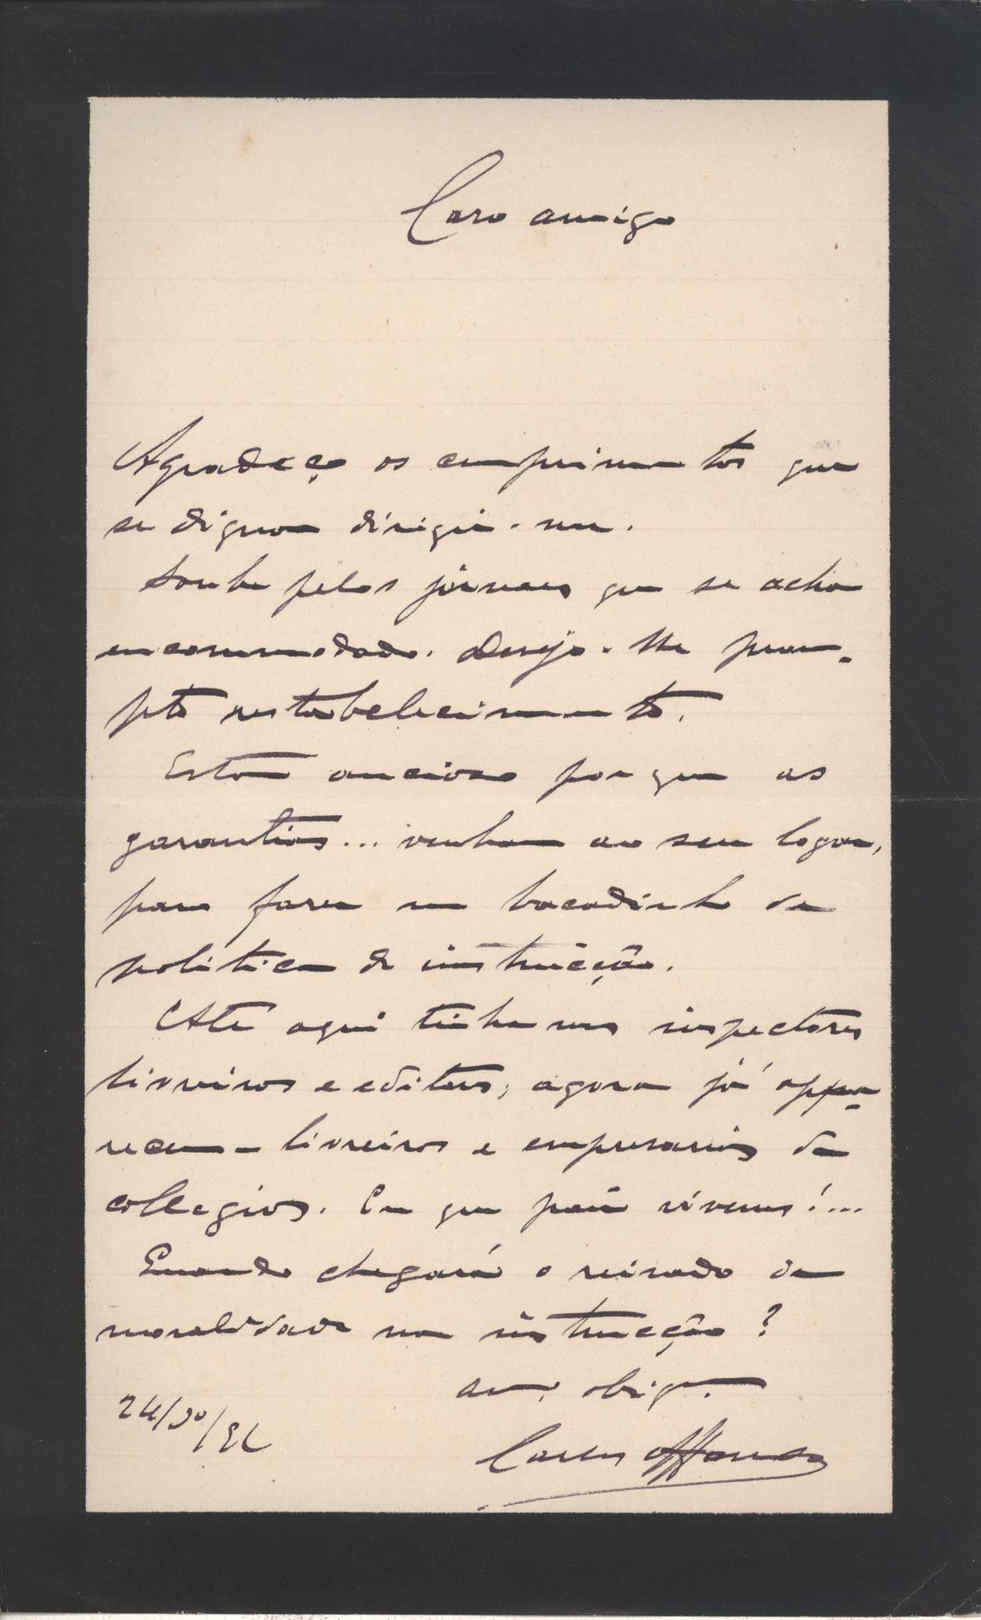 Caro amigo
Agradeço os cumprimentos que
se dignou dirigir-me.
Soube pelos jornaes que se acha
encommodado. Desejo-lhe prom-
pto restabelecimento.
Estou ancioso por que as
garantias... venham ao seu logar,
para fazer um bocadinho de
politica de instrucção.
Até aqui tinhamos inspectores
livreiros e editores; agora já appa-
recem livreiros e empresarios de
collegios. Em que paiz vivemos!...
Quando chegará o reinado da
moralidade na instrucção?
am. obrig.
24/10/
Carlos Affonso